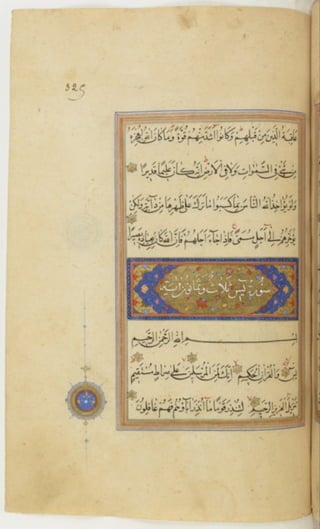 325
عاقبة الذين من قبلهم وكانوا أشد منهم قوة وما كان الله ليعجزه
من شيء في السموات ولا في الأرض إنه كان عليما قديرا
ولو يؤاخذ الله الناس بما كسبوا ما ترك على ظهرها من دابة ولكن
يؤخرهم إلى أجل مسمى فإذا جاء أجلهم فإن الله كان بعباده بصيرا
سورة يس ثلاث وثمانون آية
بسم الله الرحمن الرحيم
يس والقرآن الحكيم إنك لمن المرسلين على صراط مستقيم
تنزيل العزيز الرحيم لتنذر قوما ما أنذر آباؤهم فهم غافلون